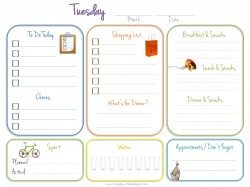 Tuesday
Month Date
To Do Today
Shopping List
Breakfast & Snacks
Lunch & Snacks
Chores
What's for Dinner?
Dinner & Snacks
Sport
Water
Appointments / Don't Forget
Planned
Actual